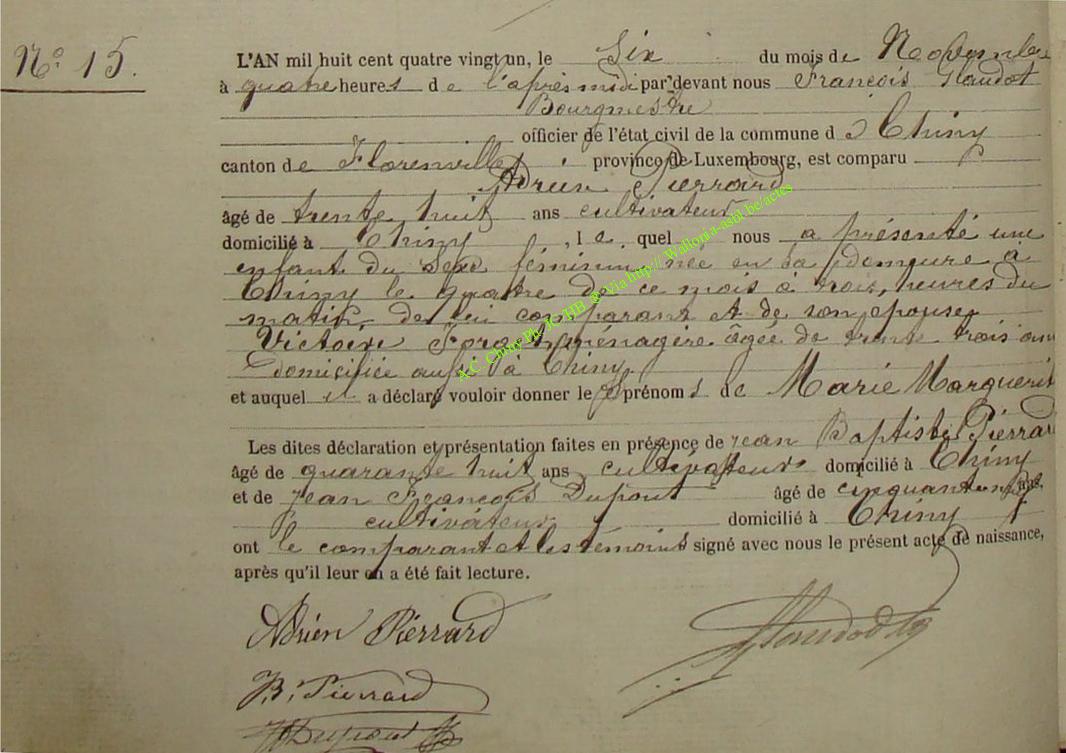 N° 15.
L'AN mil huit cent quatre vingt un, le Six du mois de Novembre
à quatre heures de l'après midi par devant nous François Glaudot
Bourgmestre
officier de l'état civil de la commune de Chiny
canton de Florenville, province de Luxembourg, est comparu
Adrien Pierrard
âgé de trente huit ans cultivateur
domicilié à Chiny, le quel nous a présenté une
enfant du Sexe féminin, née en sa demeure à
Chiny le quatre de ce mois à trois heures du
matin, de lui comparant et de son épouse
Victoire ménagère âgée de trente trois ans
Domiciliée aussi à Chiny
et auquel il a déclaré vouloir donner les prénoms de Marie Marguerit
Les dites déclaration et présentation faites en présence de Jean Baptiste Piérrard
âgé de quarante huit ans cultivateur domicilié à Chiny
et de Jean François Dupont âgé de cinquante ans,
cultivateur domicilié à Chiny
ont le comparant et les témoins signé avec nous le présent acte de naissance,
après qu'il leur en a été fait lecture.
Adrien Piérrard
J.B. Pierrard
Dupont
A.C. Chiny Ph JC HB @ Via http:// Wallonia-asbl.be/actes